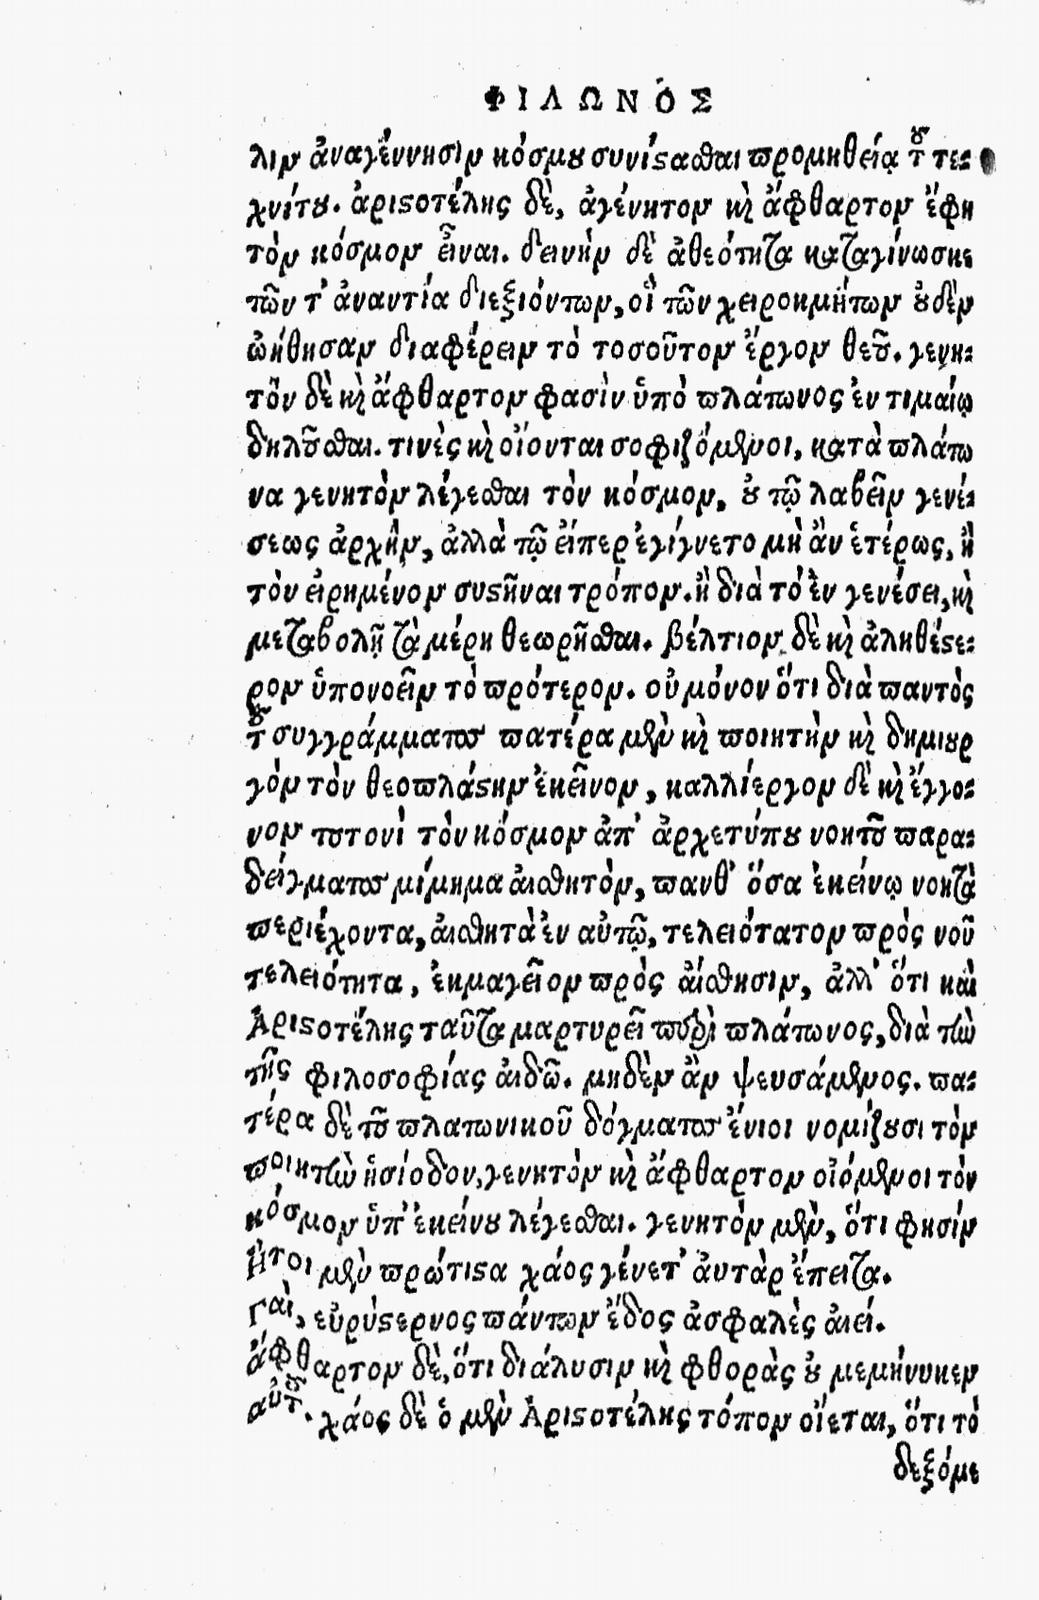 ΦΙΛΩΝΌΣ
λιν ἀναγέννησιν κόσμου συνίστασθαι προμηθείᾳ τοῦ τε-
χνίτου. ἀριστοτέλης δὲ, ἀγένητον καὶ ἄφθαρτον ἔφη
τὸν κόσμον εἶναι. δεινὴν δὲ ἀθεότητα καταγίνωσκε
τῶν τ' ἀναντία διεξιόντων, οἳ τῶν χειροκμήτων οὐδὲν
ὠήθησαν διαφέρειν τὸ τοσοῦτον ἔργον θεοῦ. γενη-
τὸν δὲ καὶ ἄφθαρτον φασὶν ὑπὸ πλάτωνος ἐν τιμαίῳ
δηλοῦσθαι. τινὲς καὶ οἴονται σοφιζόμενοι, κατὰ πλάτω
να γενητὸν λέγεσθαι τὸν κόσμον, οὐ τῷ λαβεῖν γενέ-
σεως ἀρχὴν, ἀλλὰ τῷ εἴπερ ἐγίγνετο μὴ ἂν ἑτέρως, ἢ
τὸν εἰρημένον συστῆναι τρόπον. ἢ διὰ τὸ ἐν γενέσει, καὶ
μεταβολῇ τὰ μέρη θεωρῆσθαι. βέλτιον δὲ καὶ ἀληθέστε-
ρον ὑπονοεῖν τὸ πρότερον. οὐ μόνον ὅτι διὰ παντὸς
τοῦ συγγράμματος πατέρα μὲν καὶ ποιητὴν καὶ δημιουρ
γὸν τὸν θεοπλάστην ἐκεῖνον, καλλίεργον δὲ καὶ ἔγγο-
νον τουτονὶ τὸν κόσμον ἀπ' ἀρχετύπου νοητοῦ παρα-
δείγματος μίμημα αἰσθητὸν, πανθ' ὅσα ἐκείνῳ νοητὰ
περιέχοντα, αἰσθητὰ ἐν αὐτῷ, τελειότατον πρὸς νοῦ
τελειότητα, ἐκμαγεῖον πρὸς αἴσθησιν, ἀλλ' ὅτι καὶ
Ἀριστοτέλης ταῦτα μαρτυρεῖ περὶ πλάτωνος, διὰ τὴν
τῆς φιλοσοφίας αἰδῶ. μηδὲν ἂν ψευσάμενος. πα-
τέρα δὲ τοῦ πλατωνικοῦ δόγματος ἔνιοι νομίζουσι τὸν
ποιητὴν ἡσίοδον, γενητὸν καὶ ἄφθαρτον οἰόμενοι τὸν
κόσμον ὑπ' ἐκείνου λέγεσθαι. γενητὸν μὲν, ὅτι φησίν
Ἤτοι μὲν πρώτιστα χάος γένετ' αὐτὰρ ἔπειτα.
Γαὶ, εὐρύστερνος πάντων ἕδος ἀσφαλὲς αἰεί.
ἄφθαρτον δὲ, ὅτι διάλυσιν καὶ φθορὰς οὐ μεμήνυκεν
αὐτοῦ. χάος δὲ ὁ μὲν Ἀριστοτέλης τόπον οἴεται, ὅτι τὸ
δεξόμε